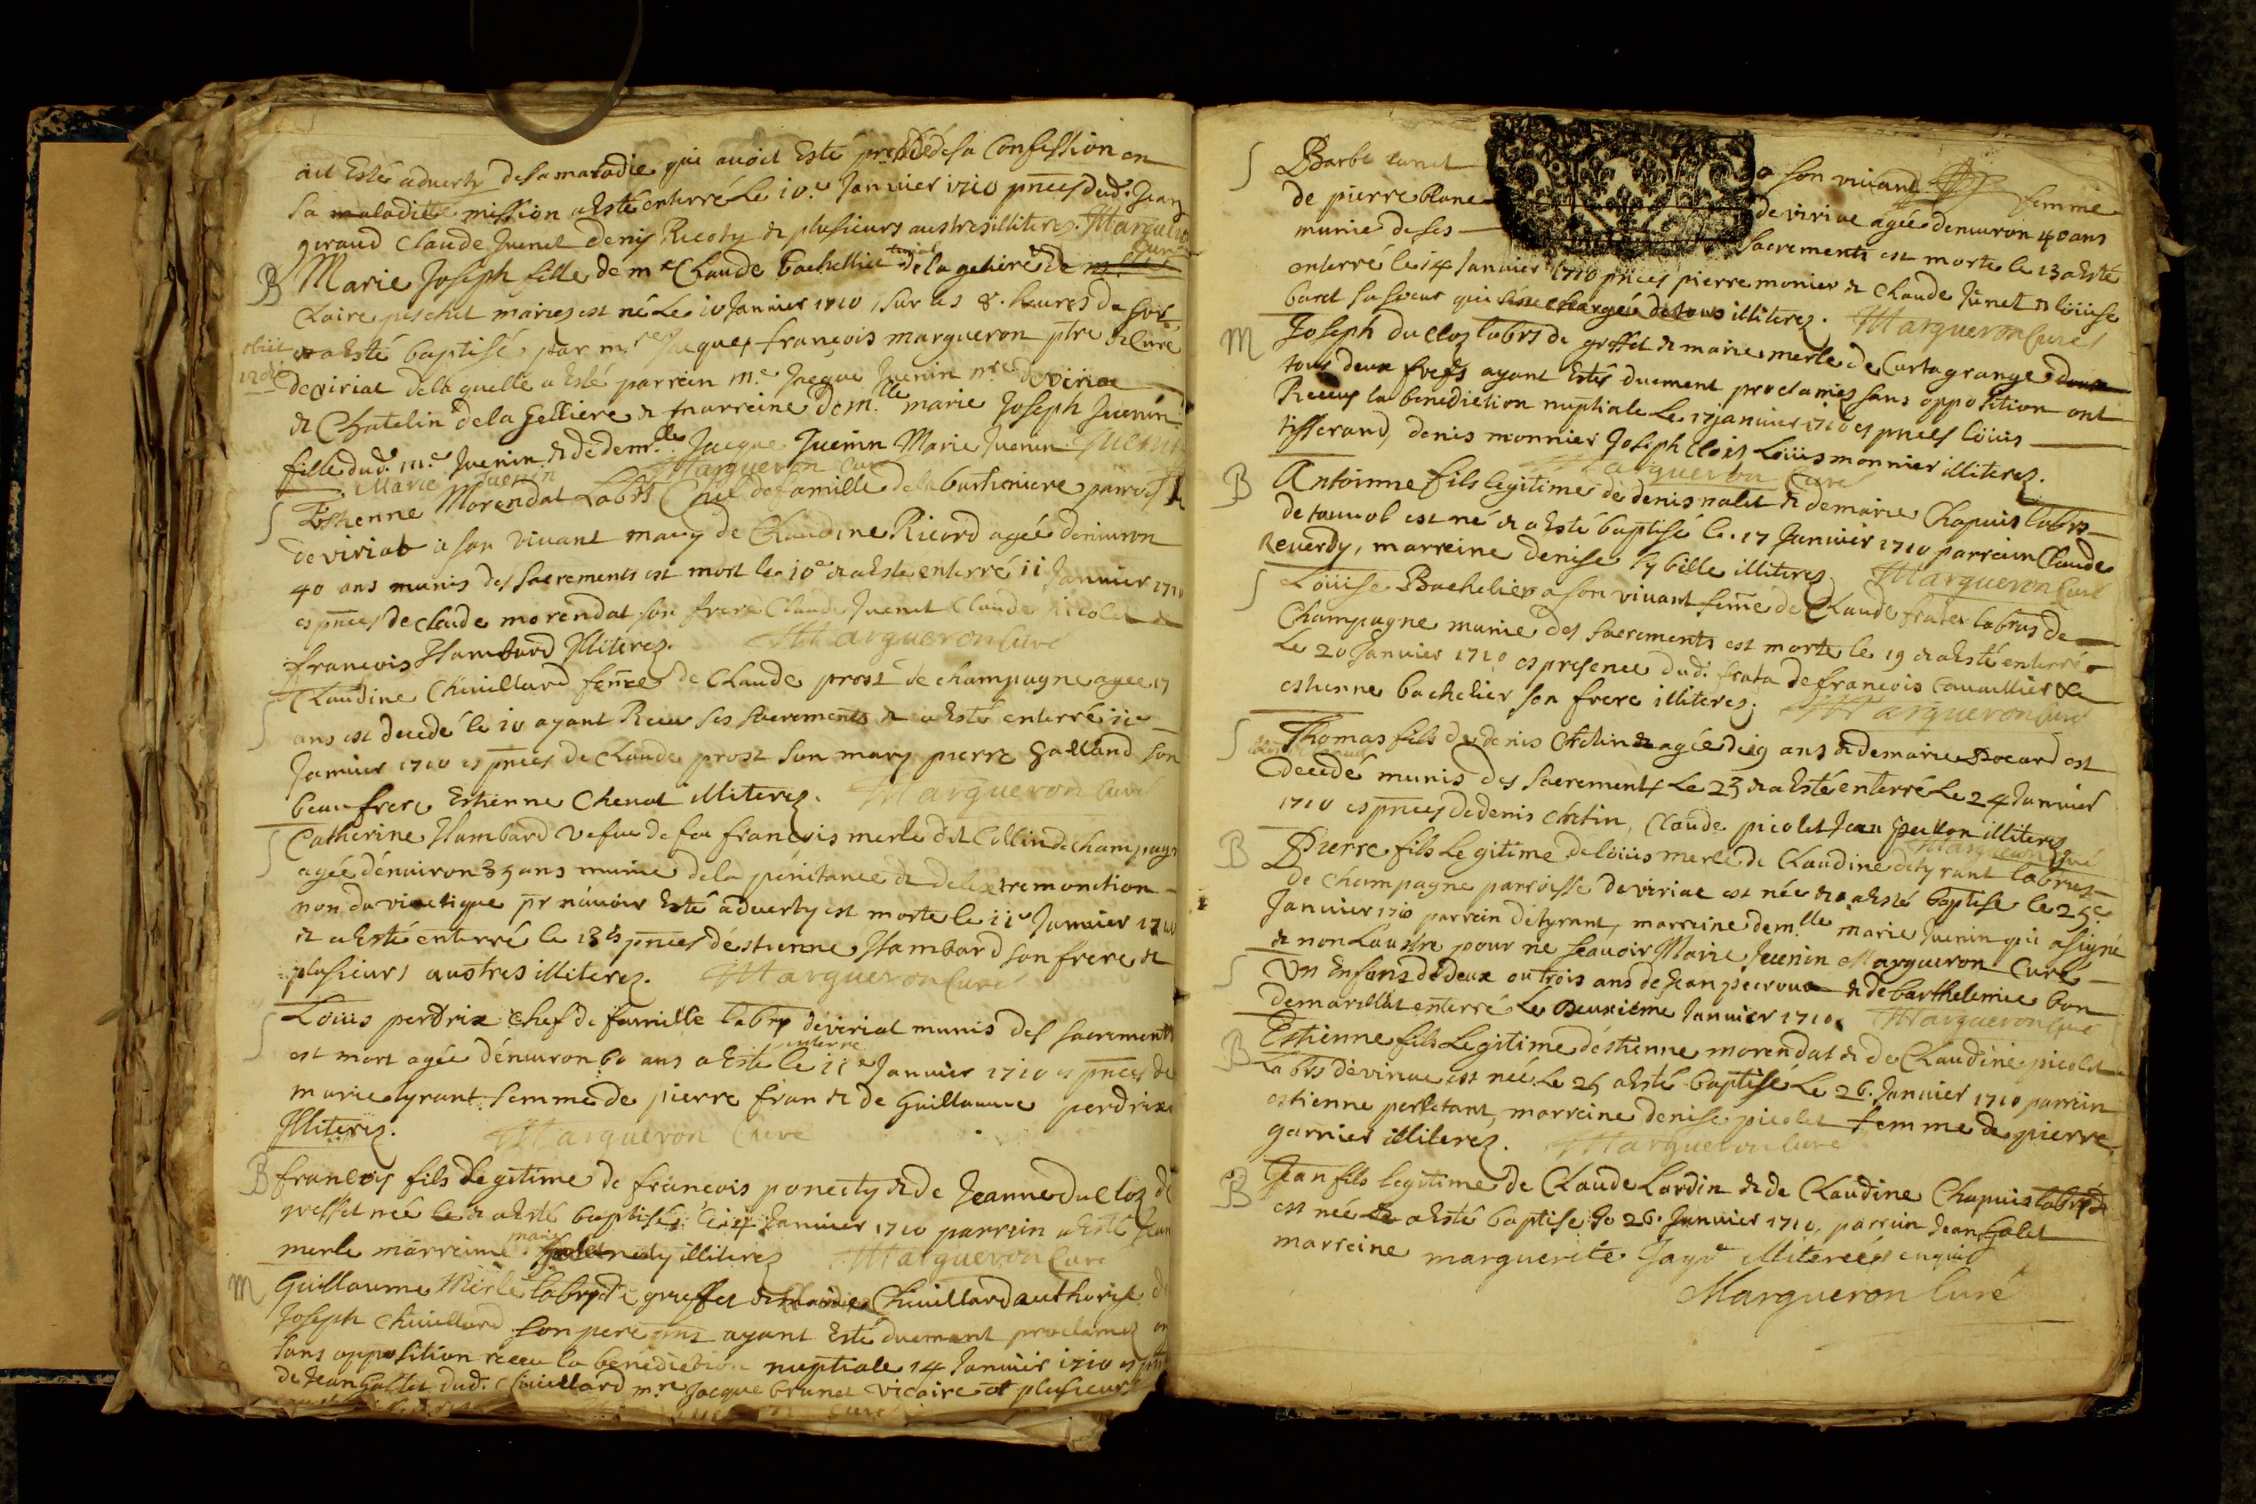 ait Esté aduerty de sa maladie qui auoit Esté de sa Confession en
sa maladie mission a Esté enterré Le 10.e Januier 1710 pnces dud. Jean
geraud Claude Juenet denis Ricoty & plusieurs austres illiterez. Margueron
Curé
B Marie Joseph fille de me Claude bachellier de la geliere & de
Claire peschet mariez est né Le 10 Januier 1710 sur les 8. heures du soir
obiit
& a Esté baptisé par mre Jaques françois margueron ptre & Curé
de viriat de laquelle a Esté parrein me Jacque Juenin nre de viriat
& Chatelin de la Gelliere & marreine demlle marie Joseph Juenin
fille dud. me Juenin & de demlle Jacque Juenin Marie Juenin Juenin
Marie Juenin Margueron Curé
S Estienne Morendat Labrs Chef de famille de la bertioniere parroisse
de viriat a son viuant mary de Claudine Ricord agée denuiron
40 ans munis des sacrements est mort le 10e & a Esté enterré 11 Januier 1710
es pnces de claude morendat son frere Claude Juenet Claude nicolet &
francois Hambard Illiterez. Margueron Curé
S Claudine Chiuillard feme de Claude prost de champagne agee 17
ans est decedé le 10 ayant Receu ses sacrements & a Esté enterré 11e
Januier 1710 es pnces de Claude prost son mary pierre Galland son
beau frere Estienne Chenat illiterez. Margueron Curé
S Catherine Hambard vefue de feu francois merle dit Collin de champagne
agée dénuiron 35 ans munie de la pénitance & de lextremonction
non du viactique pr nauoir Esté aduerty est morte le 11e Januier 1710
& a Esté enterré le 13 es pnces déstienne Hambard son frere &
plusieurs austres illiterez. Margueron Curé
S Loüis perdrix Chef de famille labrs de viriat munis des sacrements
enterré
est mort agée dénuiron 60 ans a Esté le 11e Januier 1710 es pnces de
marie tyrant femme de pierre fran & de Guillaume perdrix
Illiterez. Margueron Curé
B francois fils Legitime de francois ponesty & de Jeanne du Cloz de
greffet née & a Esté baptisé le 14 Januier 1710 parrein a Esté Jean
marie
merle marreine illiterez Margueron Curé
M Guillaume Merle labrs de greffet & Chiuillard authorisé de
Joseph Chiuillard son pere ayant Esté duement proclamez
sans opposition receu la bénédiction nuptiale 14 Januier 1710 es pnces
de Jean Gallet dud. Chiuillard mre Jacque brunet vicaire & plusieurs
S Barbe Conet a son viuant femme
de pierre blanc de viriat agée denuiron 40 ans
munie de ses Sacrements est morte le 13 a Esté
enterré le 14 Januier 1710 pnces pierre monier & Claude Junet & Loüise
illiterez. Margueron Curé
M Joseph du Cloz labrs de greffet & marie merle de Curtagrange
tous deux ayant Estés duement proclamez sans opposition ont
Receus la benediction nuptiale Le 17 januier 1710 es pnces loüis
tisserand, denis monnier Joseph Cloix Loüis monnier illiterez.
Margueron Curé
B Antoinne fils legitime de denis nalet & de marie Chapuis labrs
de tanuol est né & a Esté baptisé le 17 Januier 1710 parrein Claude
Reuerdy, marreine denise sybille illiterez Margueron Curé
S Loüise Bachelier a son viuant feme de Claude frater labrus de
Champagne munie des sacrements est morte le 19 & a Esté enterré
Le 20 Januier 1710 es presence dud. frater de francois Cauaillier &
estienne bachelier son frere illiterez. Margueron Curé
S Thomas fils de denis Chetin agée de 19 ans & de marie Bocard est
decedé munis des sacrements Le 23 & a Esté enterré Le 24 Januier
1710 es pnces de denis chetin, Claude picolet Jean peillon illiterez
Margueron Curé
B Pierre fils Legitime de loüis merle & Claudine tyrant labrus
de Champagne parroisse de viriat est née & a Esté baptisé le 25e
Januier 1710 parrein tyrant, marreine demlle marie Juenin qui a signé
& non Lautre pour ne scauoir Marie Juenin Margueron Curé
S Un Enfans de deux ou trois ans de Jean & de barthelemie bon
de marillat enterré Le deuxième Januier 1710. Margueron Curé
B Estienne fils Legitime déstienne morendat & de Claudine picolet
Labrs de viriat est née Le 25 a Esté baptisé Le 26. Januier 1710 parrein
estienne perletant, marreine denise picolet femme de pierre
garnier illiterez. Margueron Curé
B Jean fils legitime de Claude Lardin & de Claudine Chapuis labrs
est née a Esté baptisé le 26. Januier 1710, parrein Jean Galet
marreine marguerite Jayr illiterées enquis
Margueron Curé